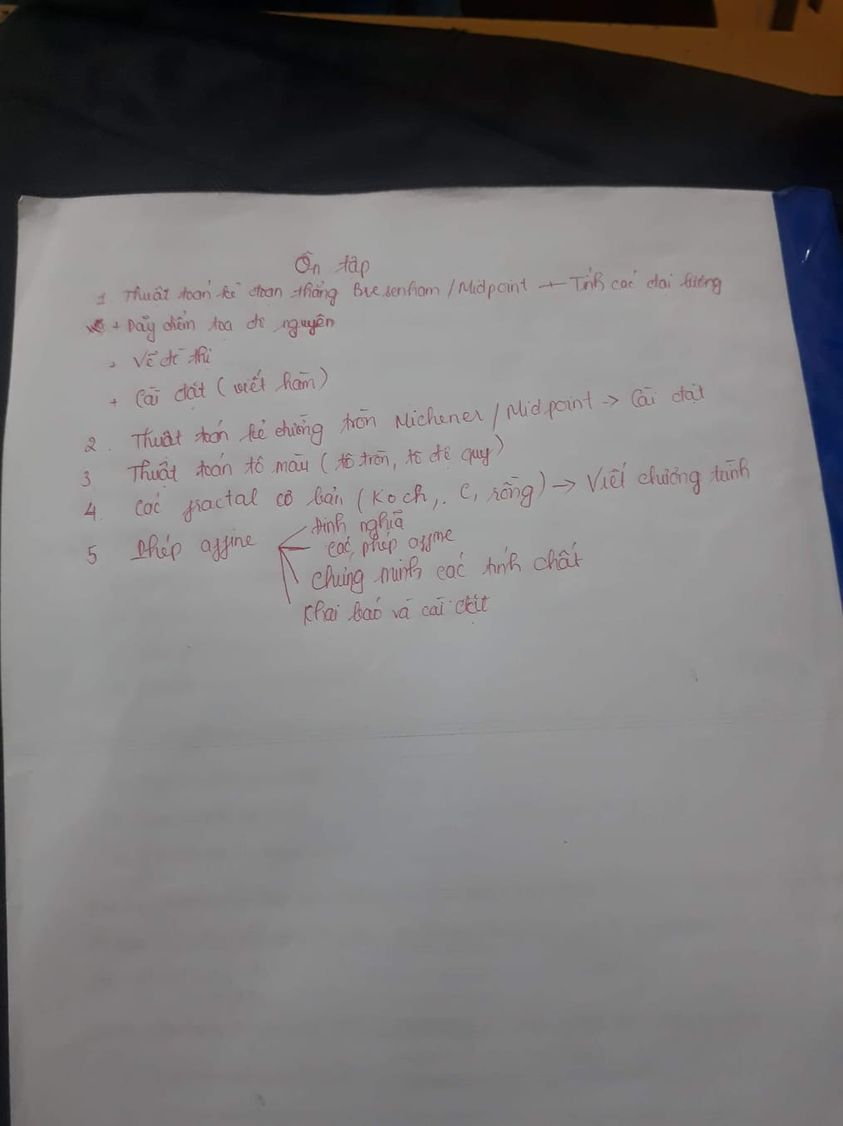 Ôn tập
1 Thuật toán kẻ đoạn thẳng Bresenham / Midpoint + Tính các đại lượng
+ Dãy điểm tọa độ nguyên
+ Vẽ đồ thị
+ Cài đặt (viết hàm)
2. Thuật toán kẻ đường tròn Michener / Midpoint -> Cài đặt
3 Thuật toán tô màu (tô tròn, tô đệ quy)
4. Các fractal cơ bản (Koch, C, rồng) -> Viết chương trình
5 Phép affine
Định nghĩa
các phép affine
Chứng minh các tính chất
Khai báo và cài đặt